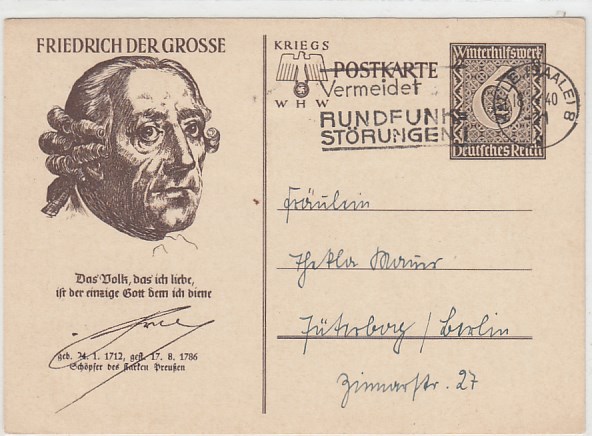 FRIEDRICH DER GROSSE
Das Volk, das ich liebe,
ist der einzige Gott dem ich diene
geb. 24. 1. 1712, gest. 17. 8. 1786
Schöpfer des starken Preußen
KRIEGS
WHW
POSTKARTE
Vermeidet
RUNDFUNK-
STÖRUNGEN!
Winterhilfswerk
6
Deutsches Reich
HALLE (SAALE) 8
18
40
Fräulein
Thekla Maurer
Jüterbog / Berlin
Zinnaerstr. 27